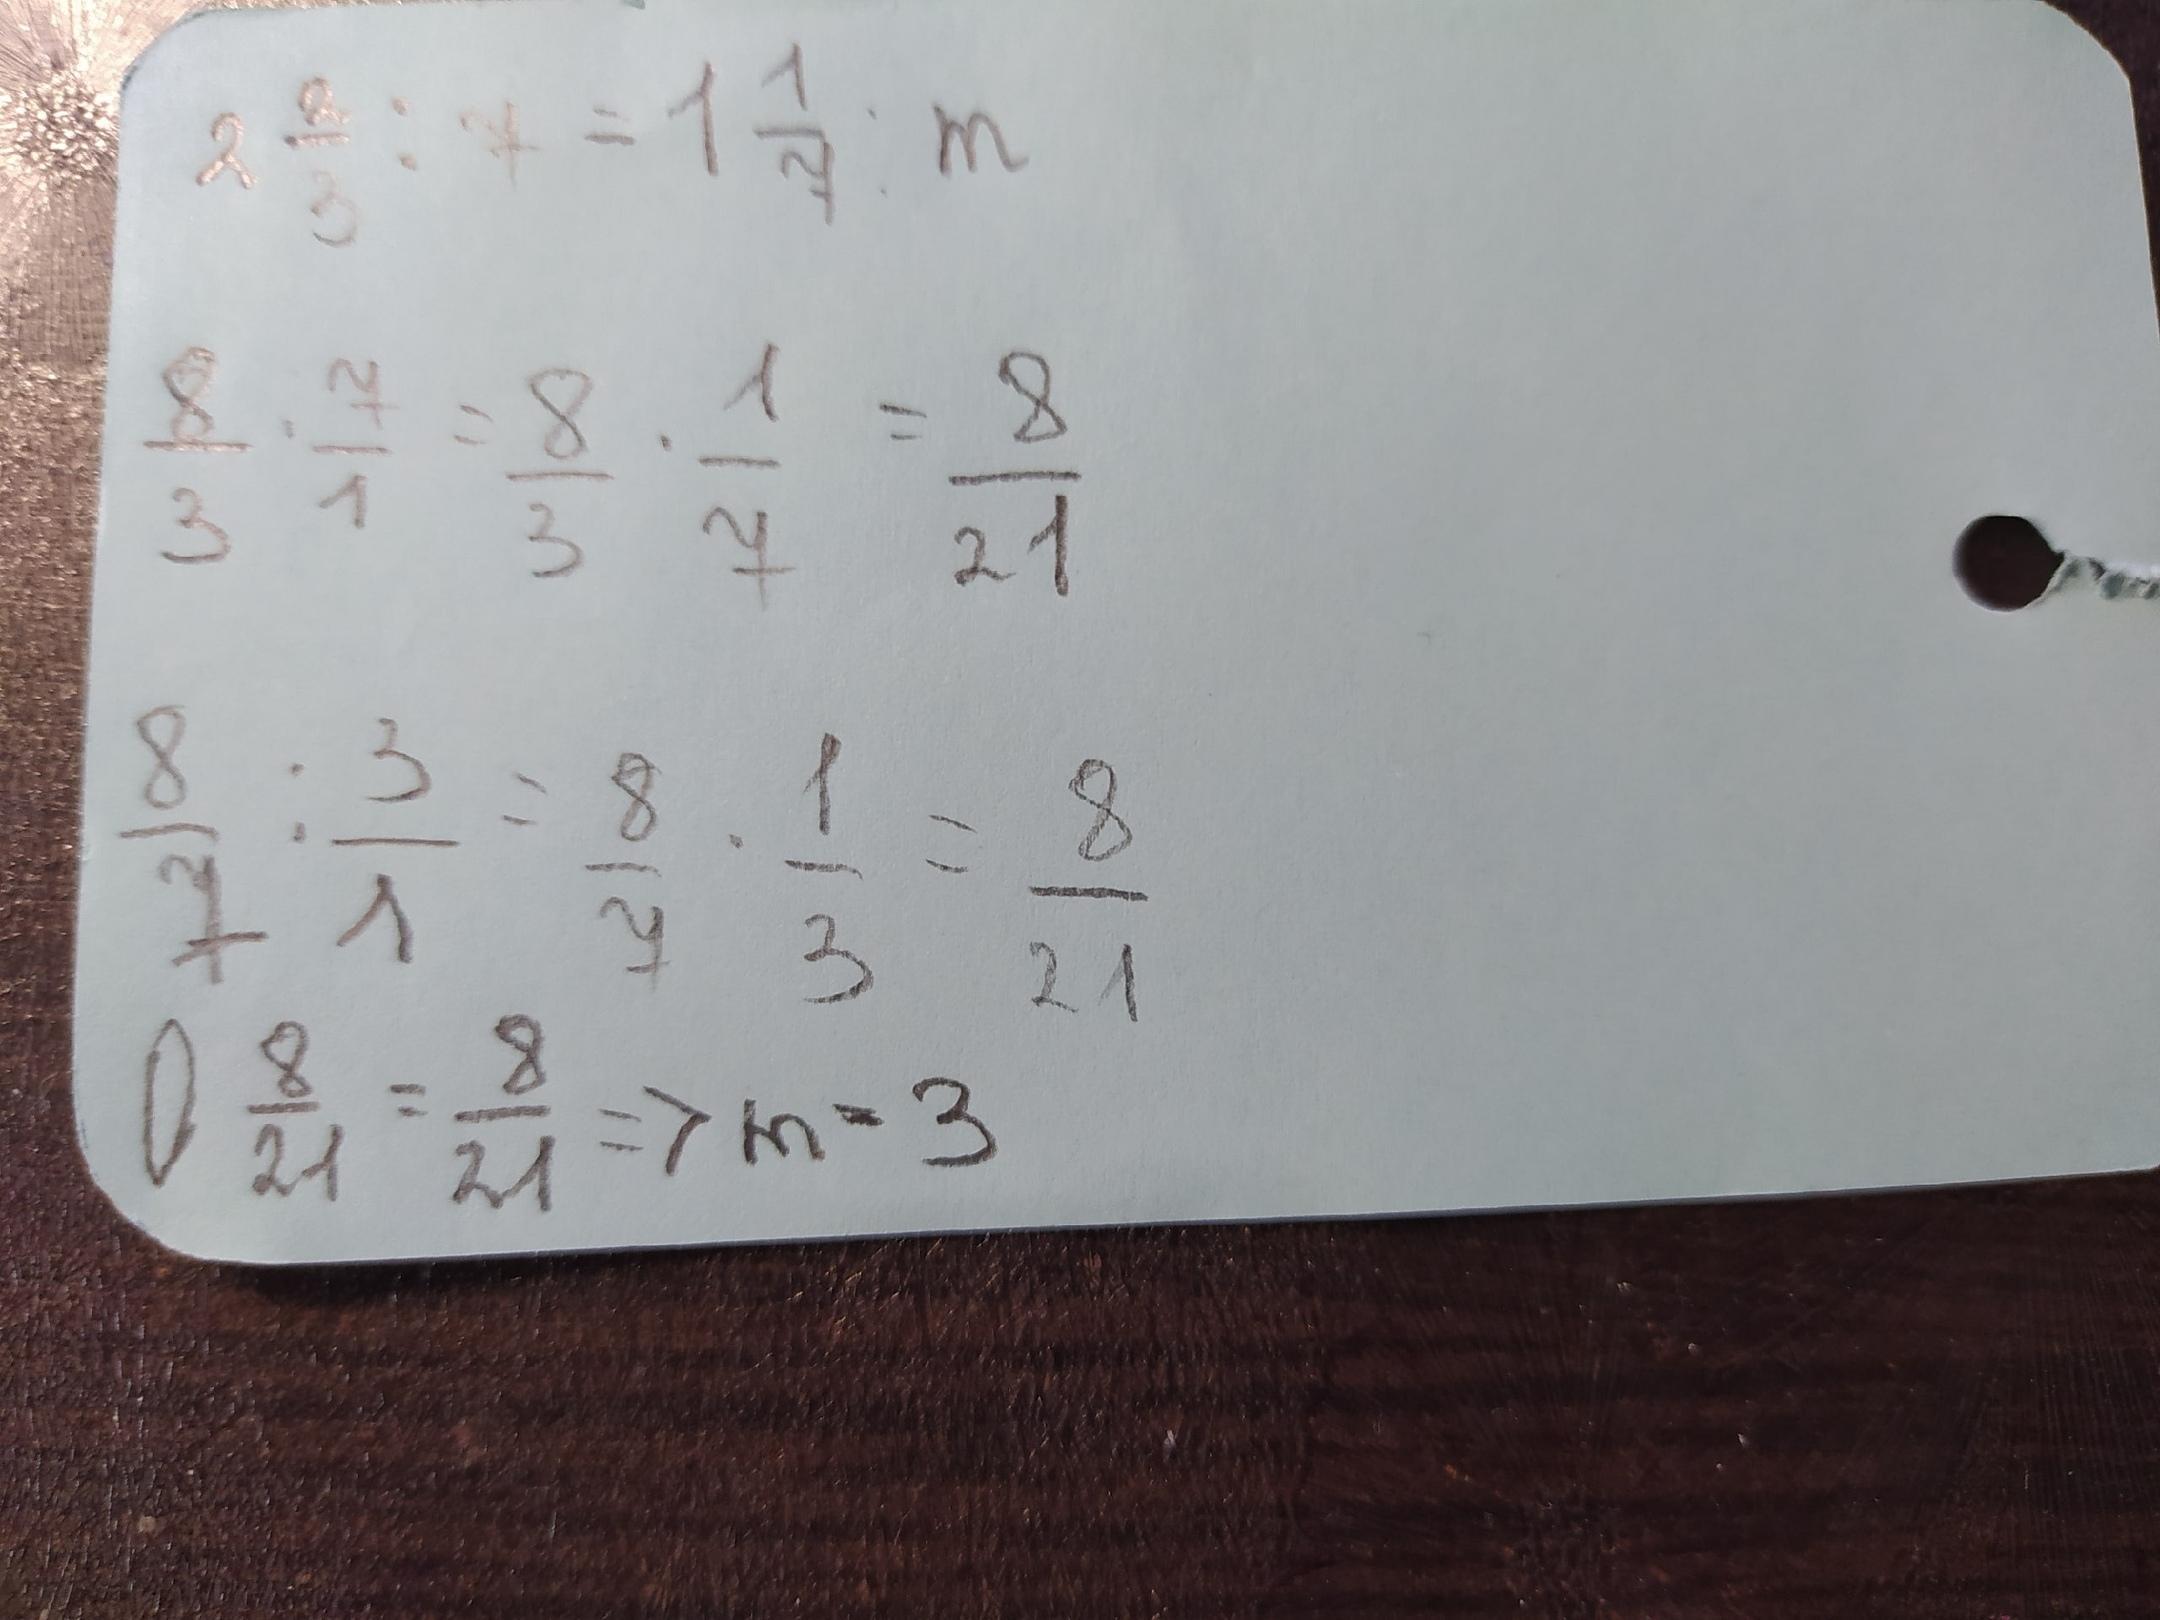 2 2/3 : 7 = 1 1/7 : m
8/3 · 7/1 = 8/3 · 1/7 = 8/21
8/7 : 3/1 = 8/7 · 1/3 = 8/21
0 8/21 = 8/21 => m = 3